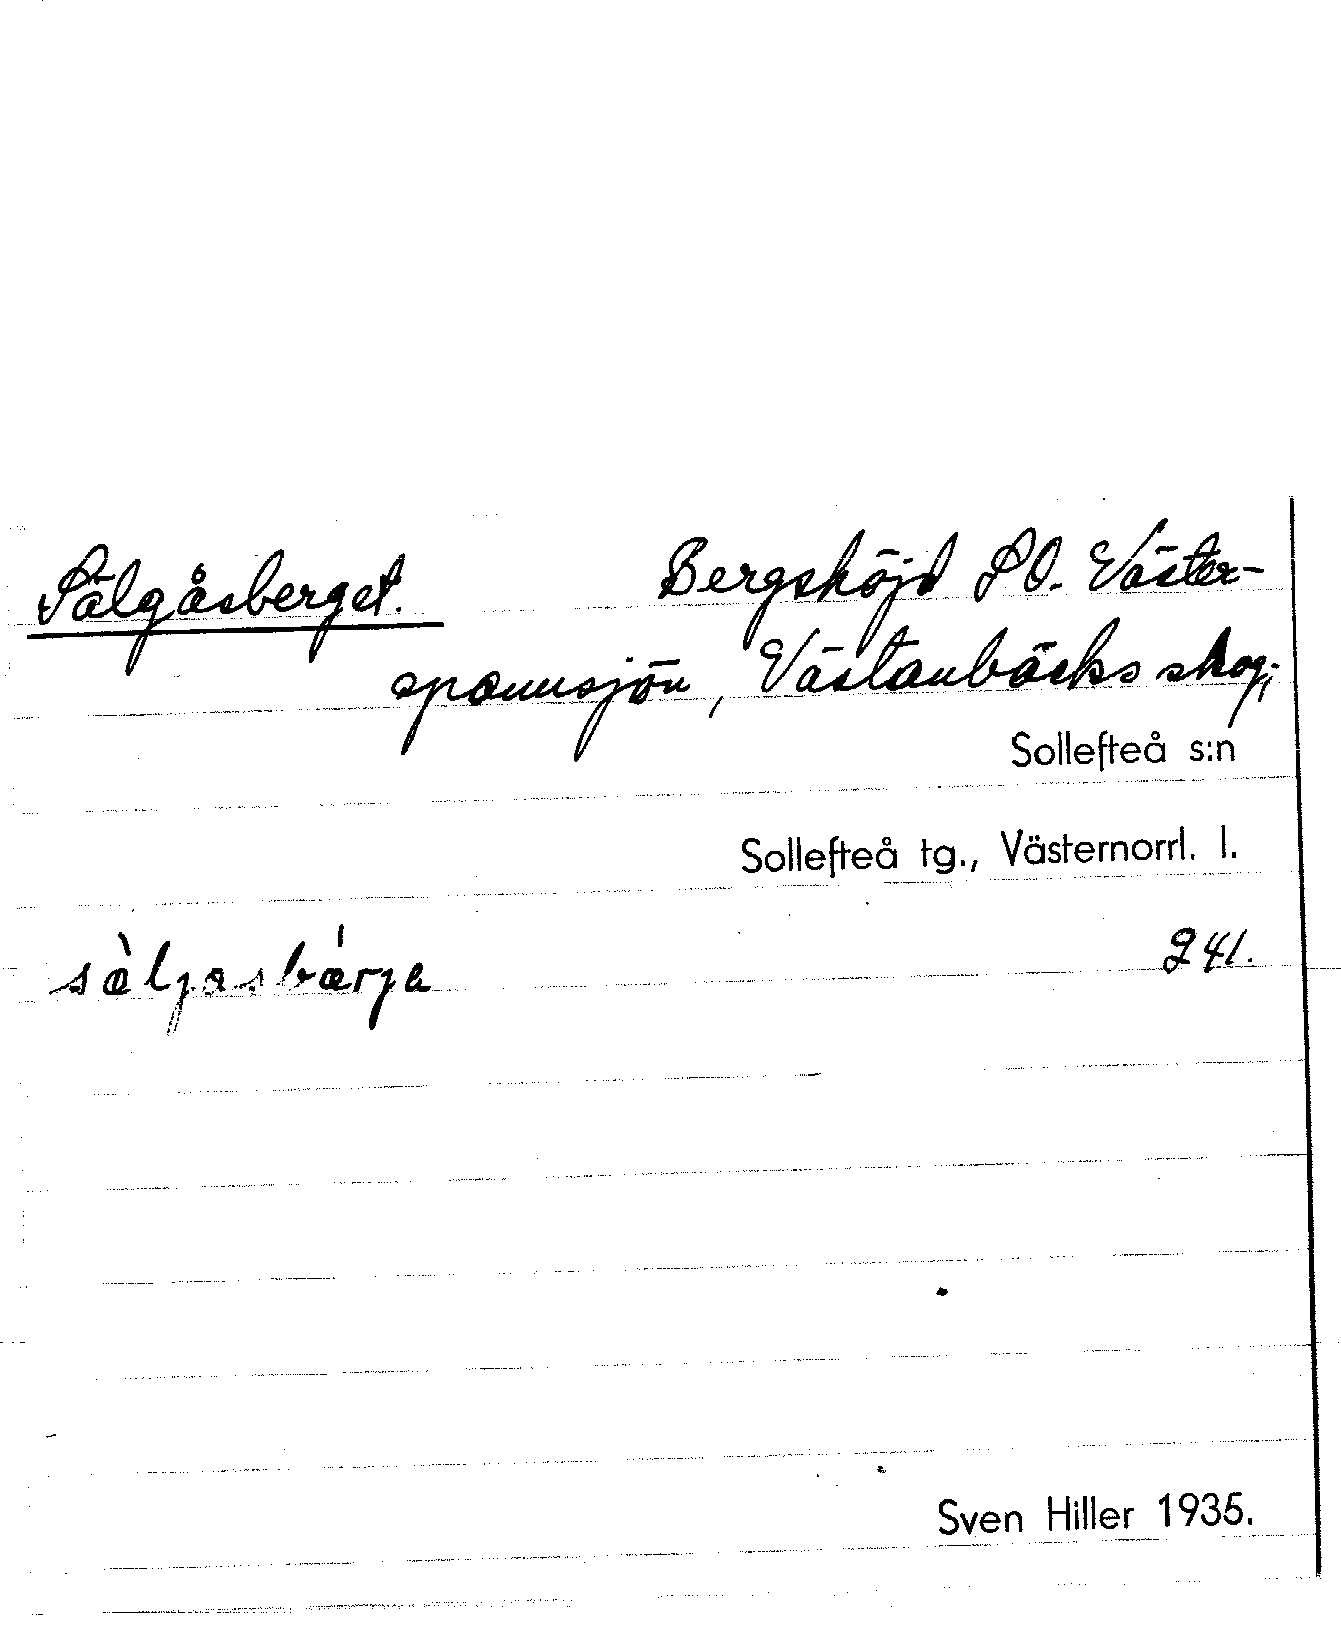 Sälgåsberget. Bergshöjd SO. Väster-
spannsjön, Västanbäcks skog;
Sollefteå s:n
Sollefteå tg., Västernorrl. l.
sæ̀ljasbǽrje 241.
Sven Hiller 1935.